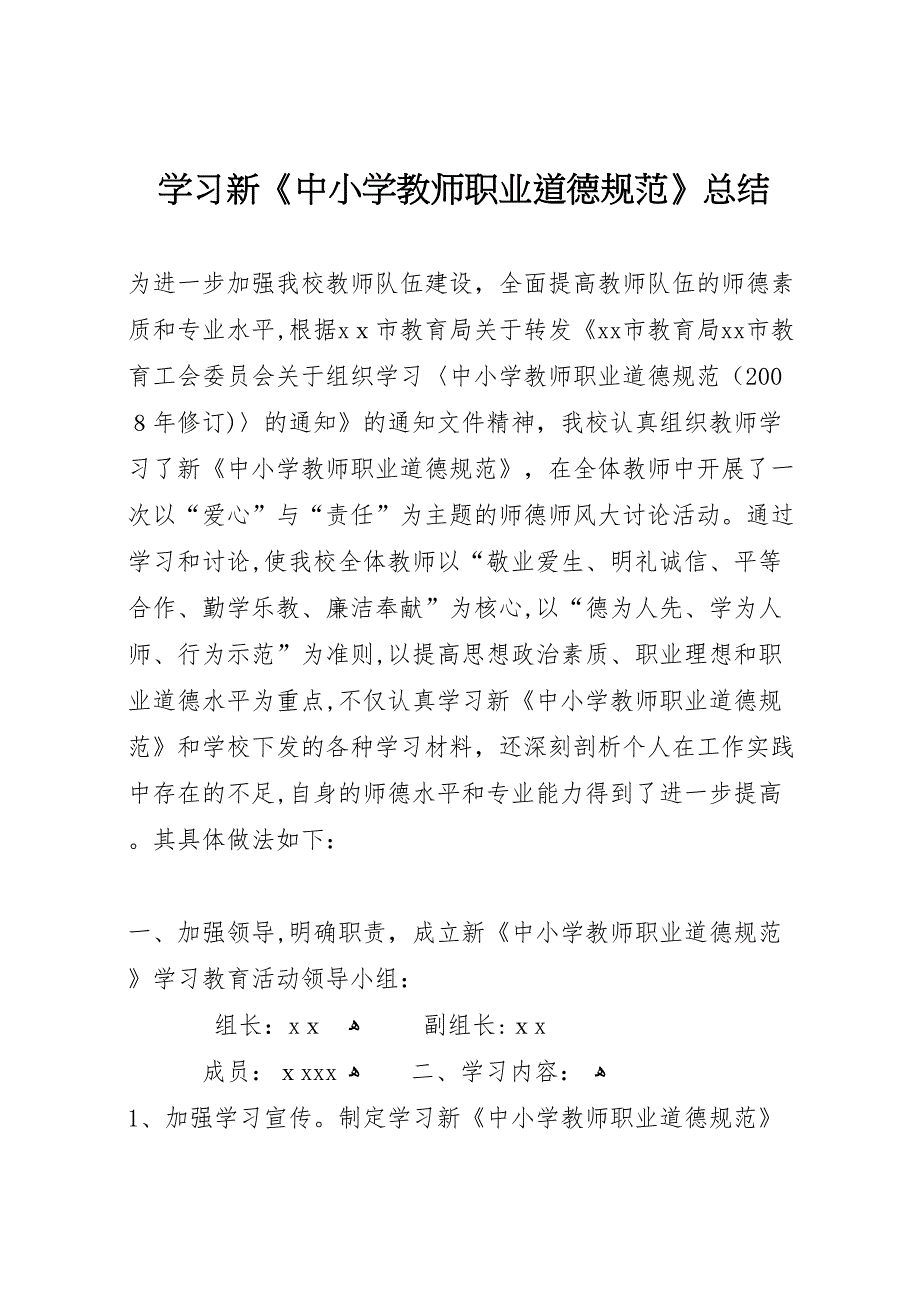 学习新《中小学教师职业道德规范》总结
为进一步加强我校教师队伍建设，全面提高教师队伍的师德素
质和专业水平,根据xｘ市教育局关于转发《xx市教育局xx市教
育工会委员会关于组织学习〈中小学教师职业道德规范（200
８年修订)〉的通知》的通知文件精神，我校认真组织教师学
习了新《中小学教师职业道德规范》，在全体教师中开展了一
次以“爱心”与“责任”为主题的师德师风大讨论活动。通过
学习和讨论,使我校全体教师以“敬业爱生、明礼诚信、平等
合作、勤学乐教、廉洁奉献”为核心,以“德为人先、学为人
师、行为示范”为准则,以提高思想政治素质、职业理想和职
业道德水平为重点,不仅认真学习新《中小学教师职业道德规
范》和学校下发的各种学习材料，还深刻剖析个人在工作实践
中存在的不足,自身的师德水平和专业能力得到了进一步提高
。其具体做法如下：
一、加强领导,明确职责，成立新《中小学教师职业道德规范
》学习教育活动领导小组：
组长：xｘ ﻫ 副组长:ｘx
成员：ｘxxx ﻫ 二、学习内容： ﻫ
1、加强学习宣传。制定学习新《中小学教师职业道德规范》